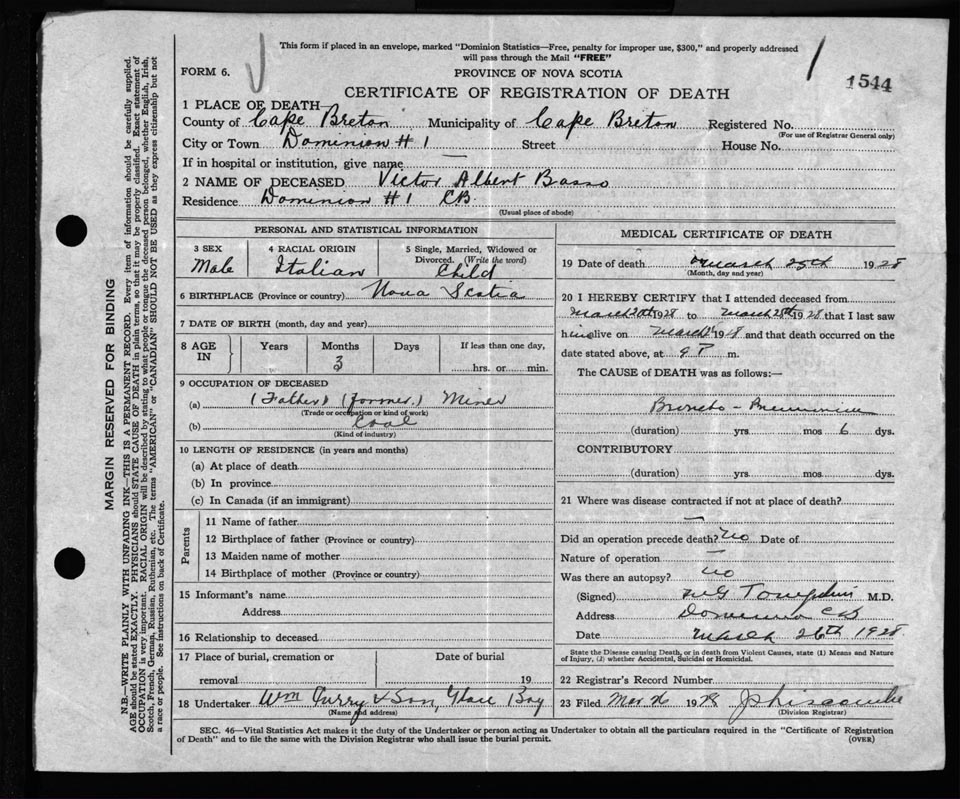 This form if placed in an envelope, marked "Dominion Statistics—Free, penalty for improper use, $300," and properly addressed
will pass through the Mail "FREE"
FORM 6.
PROVINCE OF NOVA SCOTIA
1544
CERTIFICATE OF REGISTRATION OF DEATH
1 PLACE OF DEATH
County of Cape Breton Municipality of Cape Breton Registered No.
(For use of Registrar General only)
City or Town Dominion # 1 Street House No.
If in hospital or institution, give name
2 NAME OF DECEASED Victor Albert Basso
Residence Dominion # 1 C.B.
(Usual place of abode)
PERSONAL AND STATISTICAL INFORMATION
3 SEX 4 RACIAL ORIGIN 5 Single, Married, Widowed or
Divorced. (Write the word)
Male Italian Child
6 BIRTHPLACE (Province or country) Nova Scotia
7 DATE OF BIRTH (month, day and year)
8 AGE IN Years Months Days If less than one day,
3 hrs. or min.
9 OCCUPATION OF DECEASED
(a) (Father) (former) Miner
(Trade or occupation or kind of work)
(b) Coal
(Kind of industry)
10 LENGTH OF RESIDENCE (in years and months)
(a) At place of death
(b) In province
(c) In Canada (if an immigrant)
Parents
11 Name of father
12 Birthplace of father (Province or country)
13 Maiden name of mother
14 Birthplace of mother (Province or country)
15 Informant's name
Address
16 Relationship to deceased
17 Place of burial, cremation or Date of burial
removal 19
18 Undertaker Wm Curry & Son, Glace Bay
(Name and address)
MEDICAL CERTIFICATE OF DEATH
19 Date of death March 25th 1928
(Month, day and year)
20 I HEREBY CERTIFY that I attended deceased from
March 20th 1928 to March 25th 1928 that I last saw
him alive on March 1928 and that death occurred on the
date stated above, at 9 P m.
The CAUSE of DEATH was as follows:—
Broncho - Pneumonia
(duration) yrs. mos 6 dys.
CONTRIBUTORY
(duration) yrs. mos. dys.
21 Where was disease contracted if not at place of death?
Did an operation precede death? No Date of
Nature of operation
Was there an autopsy? no
(Signed) M G Tompkins M.D.
Address Dominion CB
Date March 26th 1928
State the Disease causing Death, or in death from Violent Causes, state (1) Means and Nature
of Injury, (2) whether Accidental, Suicidal or Homicidal.
22 Registrar's Record Number
23 Filed Mar 26 1928
(Division Registrar)
SEC. 46—Vital Statistics Act makes it the duty of the Undertaker or person acting as Undertaker to obtain all the particulars required in the "Certificate of Registration
of Death" and to file the same with the Division Registrar who shall issue the burial permit.
(OVER)
MARGIN RESERVED FOR BINDING
N.B.—WRITE PLAINLY WITH UNFADING INK—THIS IS A PERMANENT RECORD. Every item of information should be carefully supplied.
AGE should be stated EXACTLY. PHYSICIANS should STATE CAUSE OF DEATH in plain terms, so that it may be properly classified. Exact statement of
OCCUPATION is very important. RACIAL ORIGIN will be described by stating to what people or tongue the deceased person belonged, whether English, Irish,
Scotch, French, German, Russian, Ruthenian, etc. The terms "AMERICAN" or "CANADIAN" SHOULD NOT BE USED as they express citizenship but not
a race or people. See instructions on back of Certificate.